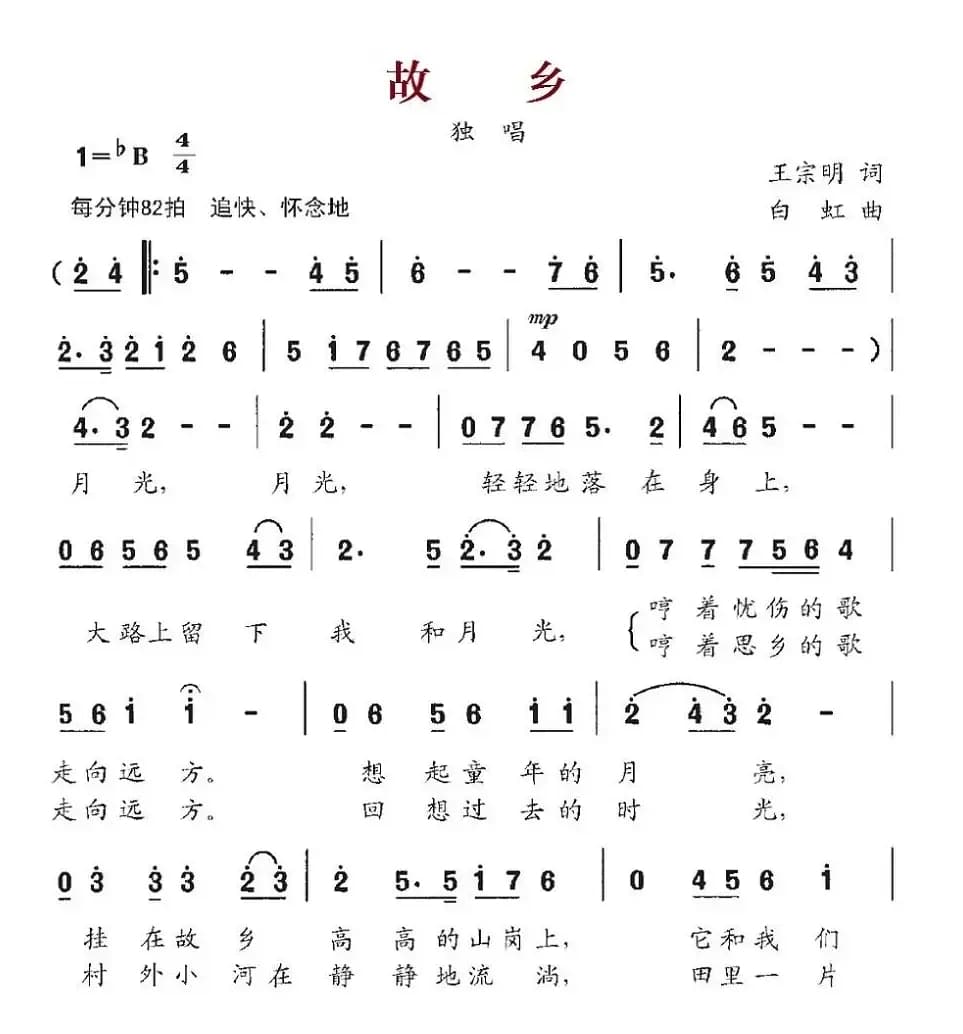 故 乡
独 唱
1=♭B 4/4
王宗明 词
每分钟82拍 追快、怀念地
白 虹 曲
( 2̇ 4̇ ‖: 5̇ - - 4̇ 5̇ | 6̇ - - 7̇ 6̇ | 5̇. 6̇ 5̇ 4̇ 3̇ |
2̇. 3̇ 2̇ 1̇ 2̇ 6 | 5 1̇ 7 6 7 6 5 | mp 4 0 5 6 | 2 - - - ) |
4. 3 2 - - | 2̇ 2̇ - - | 0 7 7 6 5. 2 | 4 6 5 - - |
月 光, 月 光, 轻轻地落 在 身 上,
0 6 5 6 5 4 3 | 2. 5 2̇. 3̇ 2̇ | 0 7 7 7 5 6 4
大路上留 下 我 和月 光, 哼 着忧伤的歌
哼 着思乡的歌
5 6 1̇ 1̇ - | 0 6 5 6 1̇ 1̇ | 2̇ 4̇ 3̇ 2̇ -
走向远 方。 想 起童 年的 月 亮,
走向远 方。 回 想过 去的 时 光,
0 3̇ 3̇ 3̇ 2̇ 3̇ | 2̇ 5. 5 1̇ 7 6 | 0 4 5 6 1̇ |
挂 在故 乡 高 高的山岗上, 它和我 们
村 外小 河在 静 静地流 淌, 田里一 片